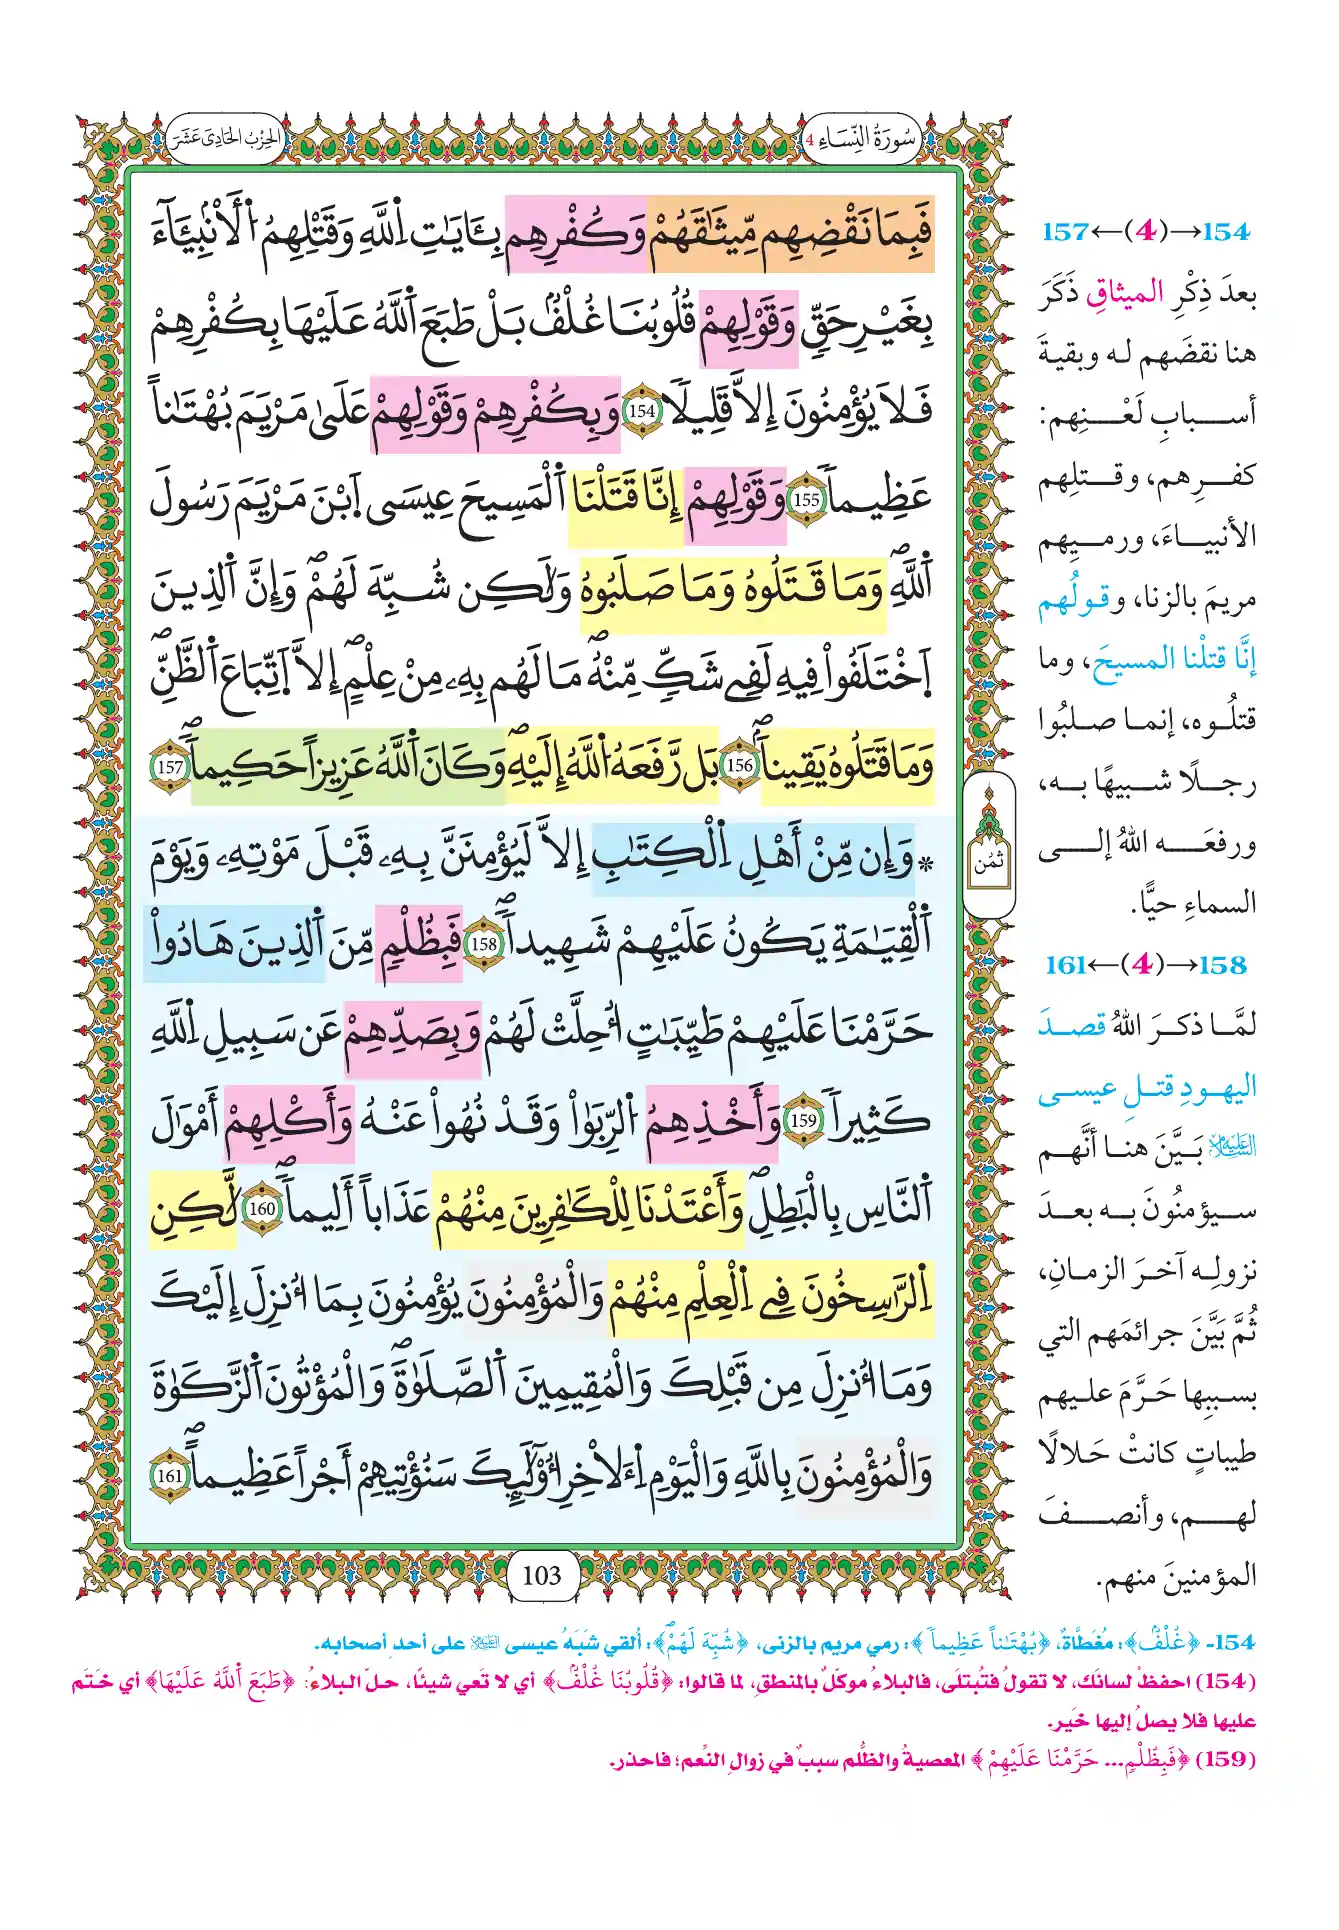 سُورَةُ النِّسَاءِ 4
الحِزْبُ الحَادِي عَشَرَ
فَبِمَا نَقْضِهِم مِّيثَٰقَهُمْ وَكُفْرِهِم بِـَٔايَٰتِ اِ۬للَّهِ وَقَتْلِهِمُ اُ۬لَانۢبِيَآءَ
بِغَيْرِ حَقّٖ وَقَوْلِهِمْ قُلُوبُنَا غُلْفُۢ بَلْ طَبَعَ اَ۬للَّهُ عَلَيْهَا بِكُفْرِهِمْ
فَلَا يُؤْمِنُونَ إِلَّا قَلِيلاٗ 154 وَبِكُفْرِهِمْ وَقَوْلِهِمْ عَلَىٰ مَرْيَمَ بُهْتَٰناً
عَظِيماٗ 155 وَقَوْلِهِمْ إِنَّا قَتَلْنَا اَ۬لْمَسِيحَ عِيسَى اَ۪بْنَ مَرْيَمَ رَسُولَ
اَ۬للَّهِۖ وَمَا قَتَلُوهُ وَمَا صَلَبُوهُ وَلَٰكِن شُبِّهَ لَهُمْۖ وَإِنَّ اَ۬لذِينَ
اَ۪خْتَلَفُواْ فِيهِ لَفِے شَكّٖ مِّنْهُۖ مَا لَهُم بِهِۦ مِنْ عِلْمٍ إِلَّا اَ۪تِّبَاعَ اَ۬لظَّنِّۖ
وَمَا قَتَلُوهُ يَقِيناَۢۖ 156 بَل رَّفَعَهُ اُ۬للَّهُ إِلَيْهِۖ وَكَانَ اَ۬للَّهُ عَزِيزاً حَكِيماٗۖ 157
* وَإِن مِّنْ أَهْلِ اِ۬لْكِتَٰبِ إِلَّا لَيُؤْمِنَنَّ بِهِۦ قَبْلَ مَوْتِهِۦ وَيَوْمَ
اَ۬لْقِيَٰمَةِ يَكُونُ عَلَيْهِمْ شَهِيداٗۖ 158 فَبِظُلْمٖ مِّنَ اَ۬لذِينَ هَادُواْ
حَرَّمْنَا عَلَيْهِمْ طَيِّبَٰتٍ ا۟حِلَّتْ لَهُمْ وَبِصَدِّهِمْ عَن سَبِيلِ اِ۬للَّهِ
كَثِيراٗ 159 وَأَخْذِهِمُ اُ۬لرِّبَوٰاْ وَقَدْ نُهُواْ عَنْهُ وَأَكْلِهِمْ أَمْوَٰلَ
اَ۬لنَّاسِ بِالْبَٰطِلِۖ وَأَعْتَدْنَا لِلْكَٰفِرِينَ مِنْهُمْ عَذَاباً أَلِيماٗۖ 160 لَّٰكِنِ
اِ۬لرَّٰسِخُونَ فِے اِ۬لْعِلْمِ مِنْهُمْ وَالْمُؤْمِنُونَ يُؤْمِنُونَ بِمَا أُنزِلَ إِلَيْكَ
وَمَا أُنزِلَ مِن قَبْلِكَ وَالْمُقِيمِينَ اَ۬لصَّلَوٰةَۖ وَالْمُؤْتُونَ اَ۬لزَّكَوٰةَ
وَالْمُؤْمِنُونَ بِاللَّهِ وَالْيَوْمِ اِ۬لَاخِرِ أُوْلَٰٓئِكَ سَنُؤْتِيهِمْ أَجْراً عَظِيماًۖ 161
ثُمُن
103
154→(4)←157
بعدَ ذِكْرِ الميثاقِ ذَكَرَ
هنا نقضَهم له وبقيةَ
أسبابِ لَعْنِهم:
كفرِهم، وقتلِهم
الأنبياءَ، ورميِهم
مريمَ بالزنا، وقولُهم
إنَّا قتلْنا المسيحَ، وما
قتلُوه، إنما صلبُوا
رجلًا شبيهًا به،
ورفعَه اللهُ إلى
السماءِ حيًّا.
158→(4)←161
لمَّا ذكرَ اللهُ قصدَ
اليهودِ قتلِ عيسى
عليه السلام بَيَّنَ هنا أنَّهم
سيؤمنُونَ به بعدَ
نزولِه آخرَ الزمانِ،
ثُمَّ بَيَّنَ جرائمَهم التي
بسببِها حَرَّمَ عليهم
طيباتٍ كانتْ حَلالًا
لهم، وأنصفَ
المؤمنينَ منهم.
154- ﴿غُلْفُۢ﴾: مُغَطَّاةٌ، ﴿بُهْتَٰناً عَظِيماٗ﴾: رمي مريم بالزنى، ﴿شُبِّهَ لَهُمْۖ﴾: أُلقي شَبَهُ عيسى عليه السلام على أحدِ أصحابه.
(154) احفظْ لسانَك، لا تقولُ فتُبتلَى، فالبلاءُ موكَلٌ بالمنطقِ، لما قالوا: ﴿قُلُوبُنَا غُلْفُۢ﴾ أي لا تَعي شيئًا، حلّ البلاءُ: ﴿طَبَعَ اَ۬للَّهُ عَلَيْهَا﴾ أي ختَم
عليها فلا يصلُ إليها خَير.
(159) ﴿فَبِظُلْمٖ... حَرَّمْنَا عَلَيْهِمْ﴾ المعصيةُ والظُّلم سببٌ في زوالِ النِّعم؛ فاحذر.